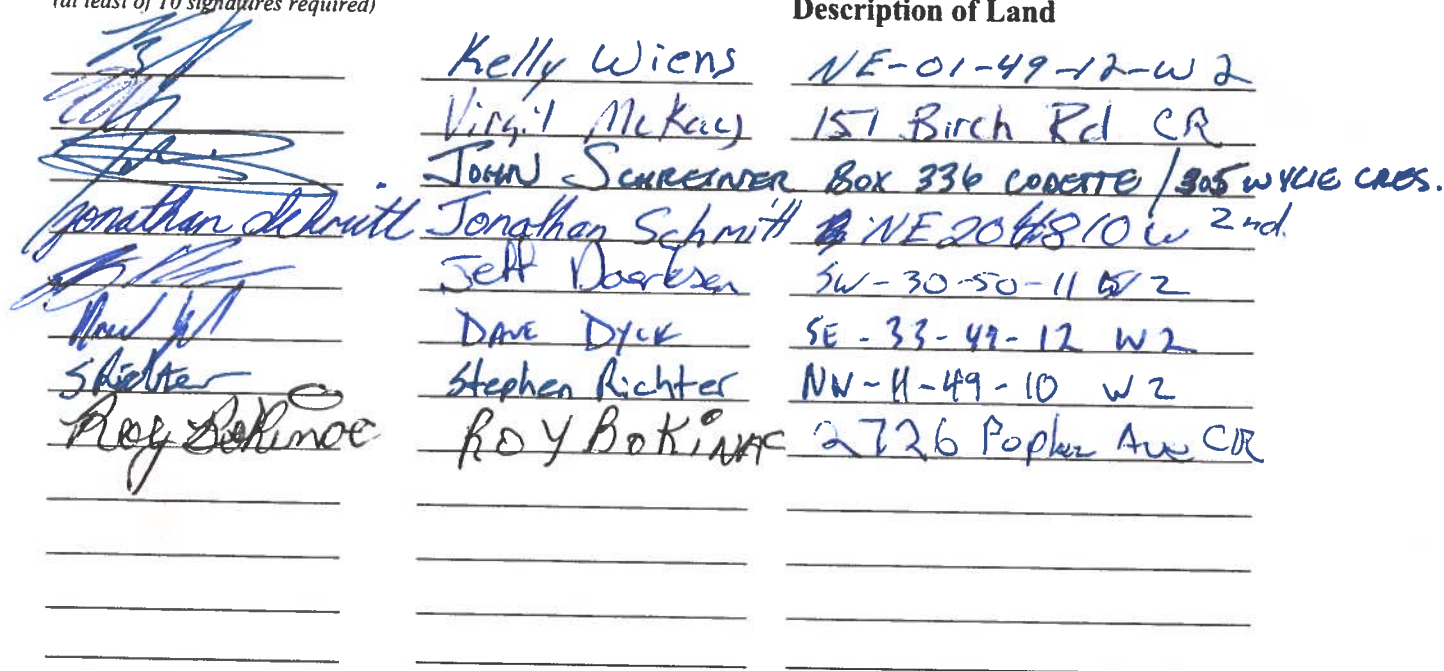 (at least of 10 signatures required)
Description of Land
Kelly Wiens NE-01-49-12-W2
Virgil McKay 151 Birch Rd CR
JOHN SCHREINER BOX 336 CODETTE / 305 WYLIE CRES.
Jonathan Schmitt Jonathan Schmitt NE 20 48 10 W 2nd.
Jeff Doerksen SW-30-50-11 W2
DAVE DYCK SE-33-49-12 W2
SRichter Stephen Richter NW-11-49-10 W2
Roy ROY BOKiNAC 2726 Poplar Ave CR